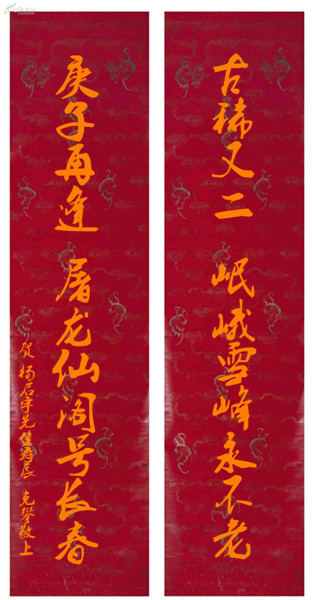 古稀又二 岷峨雪峰永不老
庚子再逢 屠龙仙阁号长春
贺 杨启宇先生寿辰 克攀敬上